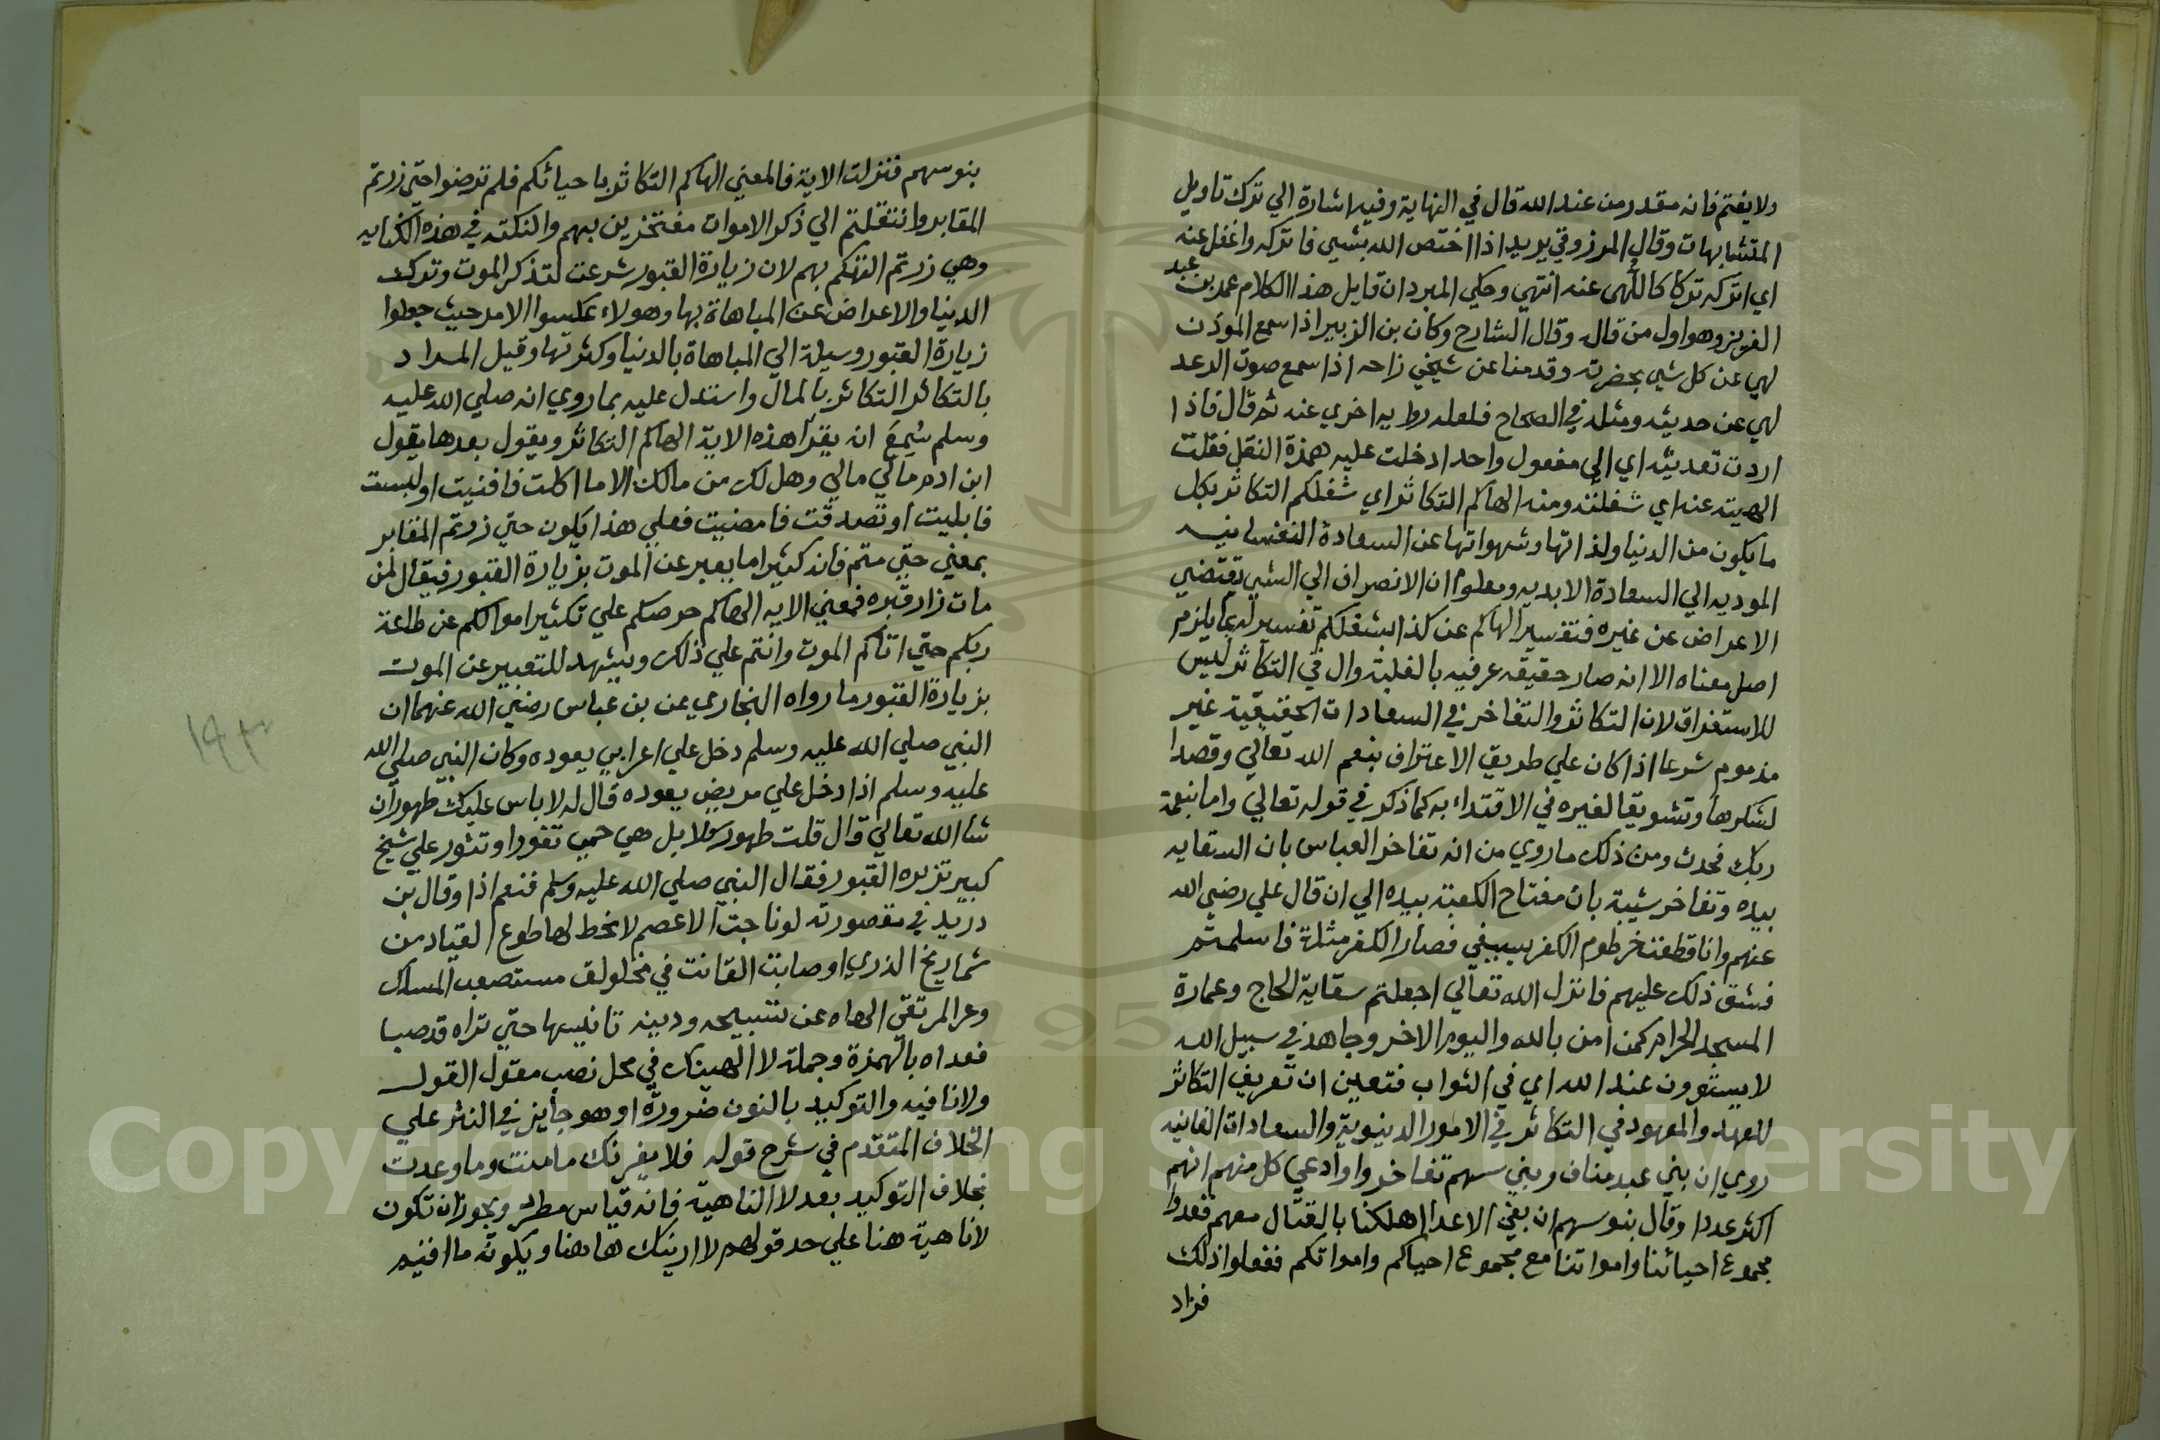 ولا يفتم فانه مقدر من عند الله قال في النهاية وفيه اشارة الي ترك تاويل
المتشابهات وقال المرزوقي يريد اذا اختص الله بشيي فاتركه واغفل عنه
اي اتركه تركا كاللهي عنه انتهي وحكي المبرد ان قايل هذا الكلام عمر بن عبد
العزيز وهو اول من قاله وقال الشارح وكان بن الزبير اذا سمع الموذن
لهي عن كل شيي بحضرته وقدمنا عن شيخي زاحه اذا سمع صوت الرعد
لهي عن حديثه ومثله في الصحاح فلعله رواية اخري عنه ثم قال فاذا
اردت تعديته اي الي مفعول واحد ادخلت عليه همزة النقل فقلت
الهيته عنه اي شغلته ومنه الهاكم التكاثر اي شغلكم التكاثر بكل
ما يكون من الدنيا ولذاتها وشهواتها عن السعادة النفسانيه
الموديه الي السعادة الابديه ومعلوم ان الانصراف الي الشيي تقتضي
الاعراض عن غيره فتفسير الهاكم عن كذا بشغلكم تفسير له بما يلزم
اصل معناه الا انه صار حقيقه عرفيه بالغلبة وال في التكاثر ليس
للاستغراق لان التكاثر والتفاخر في السعادات الحقيقية غير
مذموم شرعا اذا كان علي طريق الاعتراف بنعم الله تعالي وقصدا
لشكرها وتشويقا لغيره في الاقتداء به كما ذكر في قوله تعالي واما بنعمة
ربك فحدث ومن ذلك ما روي من انه تفاخر العباس بان السقايه
بيده وتفاخر شيبة بان مفتاح الكعبة بيده الي ان قال علي رضي الله
عنهم وانا قطعت خرطوم الكفر بسيفي فصار الكفر مثلة فاسلمتم
فشق ذلك عليهم فانزل الله تعالي اجعلتم سقاية الحاج وعمارة
المسجد الحرام كمن امن بالله واليوم الاخر وجاهد في سبيل الله
لا يستوون عند الله اي في الثواب فتعين ان تعريف التكاثر
للعهد والمعهود في التكاثر في الامور الدنيوية والسعادات الفانيه
روي ان بني عبد مناف وبني سهم تفاخروا وادعي كل منهم انهم
اكثر عددا وقال بنو سهم ان بغي الاعدا اهلكنا بالقتال معهم فعدوا
مجموع احيائنا وامواتنا مع مجموع احياكم وامواتكم ففعلوا ذلك
فزاد
بنو سهم فنزلت الاية فالمعني الهاكم التكاثر باحيائكم فلم ترضوا حتي زرتم
المقابر وانتقلتم الي ذكر الاموات مفتخرين بهم والنكته في هذه الكنايه
وهي زرتم التهكم بهم لان زيارة القبور شرعت لتذكر الموت وترك
الدنيا والاعراض عن المباهاة بها وهولاء عكسوا الامر حيث جعلوا
زيارة القبور وسيلة الي المباهاة بالدنيا وكثرتها وقيل المراد
بالتكاثر التكاثر بالمال واستدل عليه بما روي انه صلي الله عليه
وسلم سُمِعَ انه يقرا هذه الاية الهاكم التكاثر ويقول بعدها يقول
ابن ادم مالي مالي وهل لك من مالك الا ما اكلت فافنيت او لبست
فابليت او تصدقت فامضيت فعلي هذا يكون حتي زرتم المقابر
بمعني حتي متم فانه كثيرا ما يعبر عن الموت بزيارة القبور فيقال لمن
مات زار قبره فمعني الايه الهاكم حرصكم علي تكثير اموالكم عن طاعة
ربكم حتي اتاكم الموت وانتم علي ذلك ويشهد للتعبير عن الموت
بزيارة القبور ما رواه البخاري عن بن عباس رضي الله عنهما ان
النبي صلي الله عليه وسلم دخل علي اعرابي يعوده وكان النبي صلي الله
عليه وسلم اذا دخل علي مريض يعوده قال له لا باس عليك طهور ان
شا الله تعالي قال قلت طهور كلا بل هي حمي تفور او تثور علي شيخ
كبير تزيره القبور فقال النبي صلي الله عليه وسلم فنعم اذا وقال بن
دريد في مقصورته لو ناجت الاعصم لانحط لها طوع القياد من
شماريخ الذري او صابت القانت في مخلولق مستصعب المسلك
وعر المرتقي الهاه عن تسبيحه ودينه تانيسها حتي تراه قد صبا
فعداه بالهمزة وجملة لا الهينك في محل نصب مقول القول
ولا نافيه والتوكيد بالنون ضرورة او هو جايز في النثر علي
الخلاف المتقدم في شرح قوله فلا يغرنك ما منت وما وعدت
بخلاف التوكيد بعد لا الناهية فانه قياس مطرد ويجوز ان تكون
لا ناهية هنا علي حد قولهم لا ارينك هاهنا ويكون ما افنيه
١٩٣
Copyright © King Saud University
1957